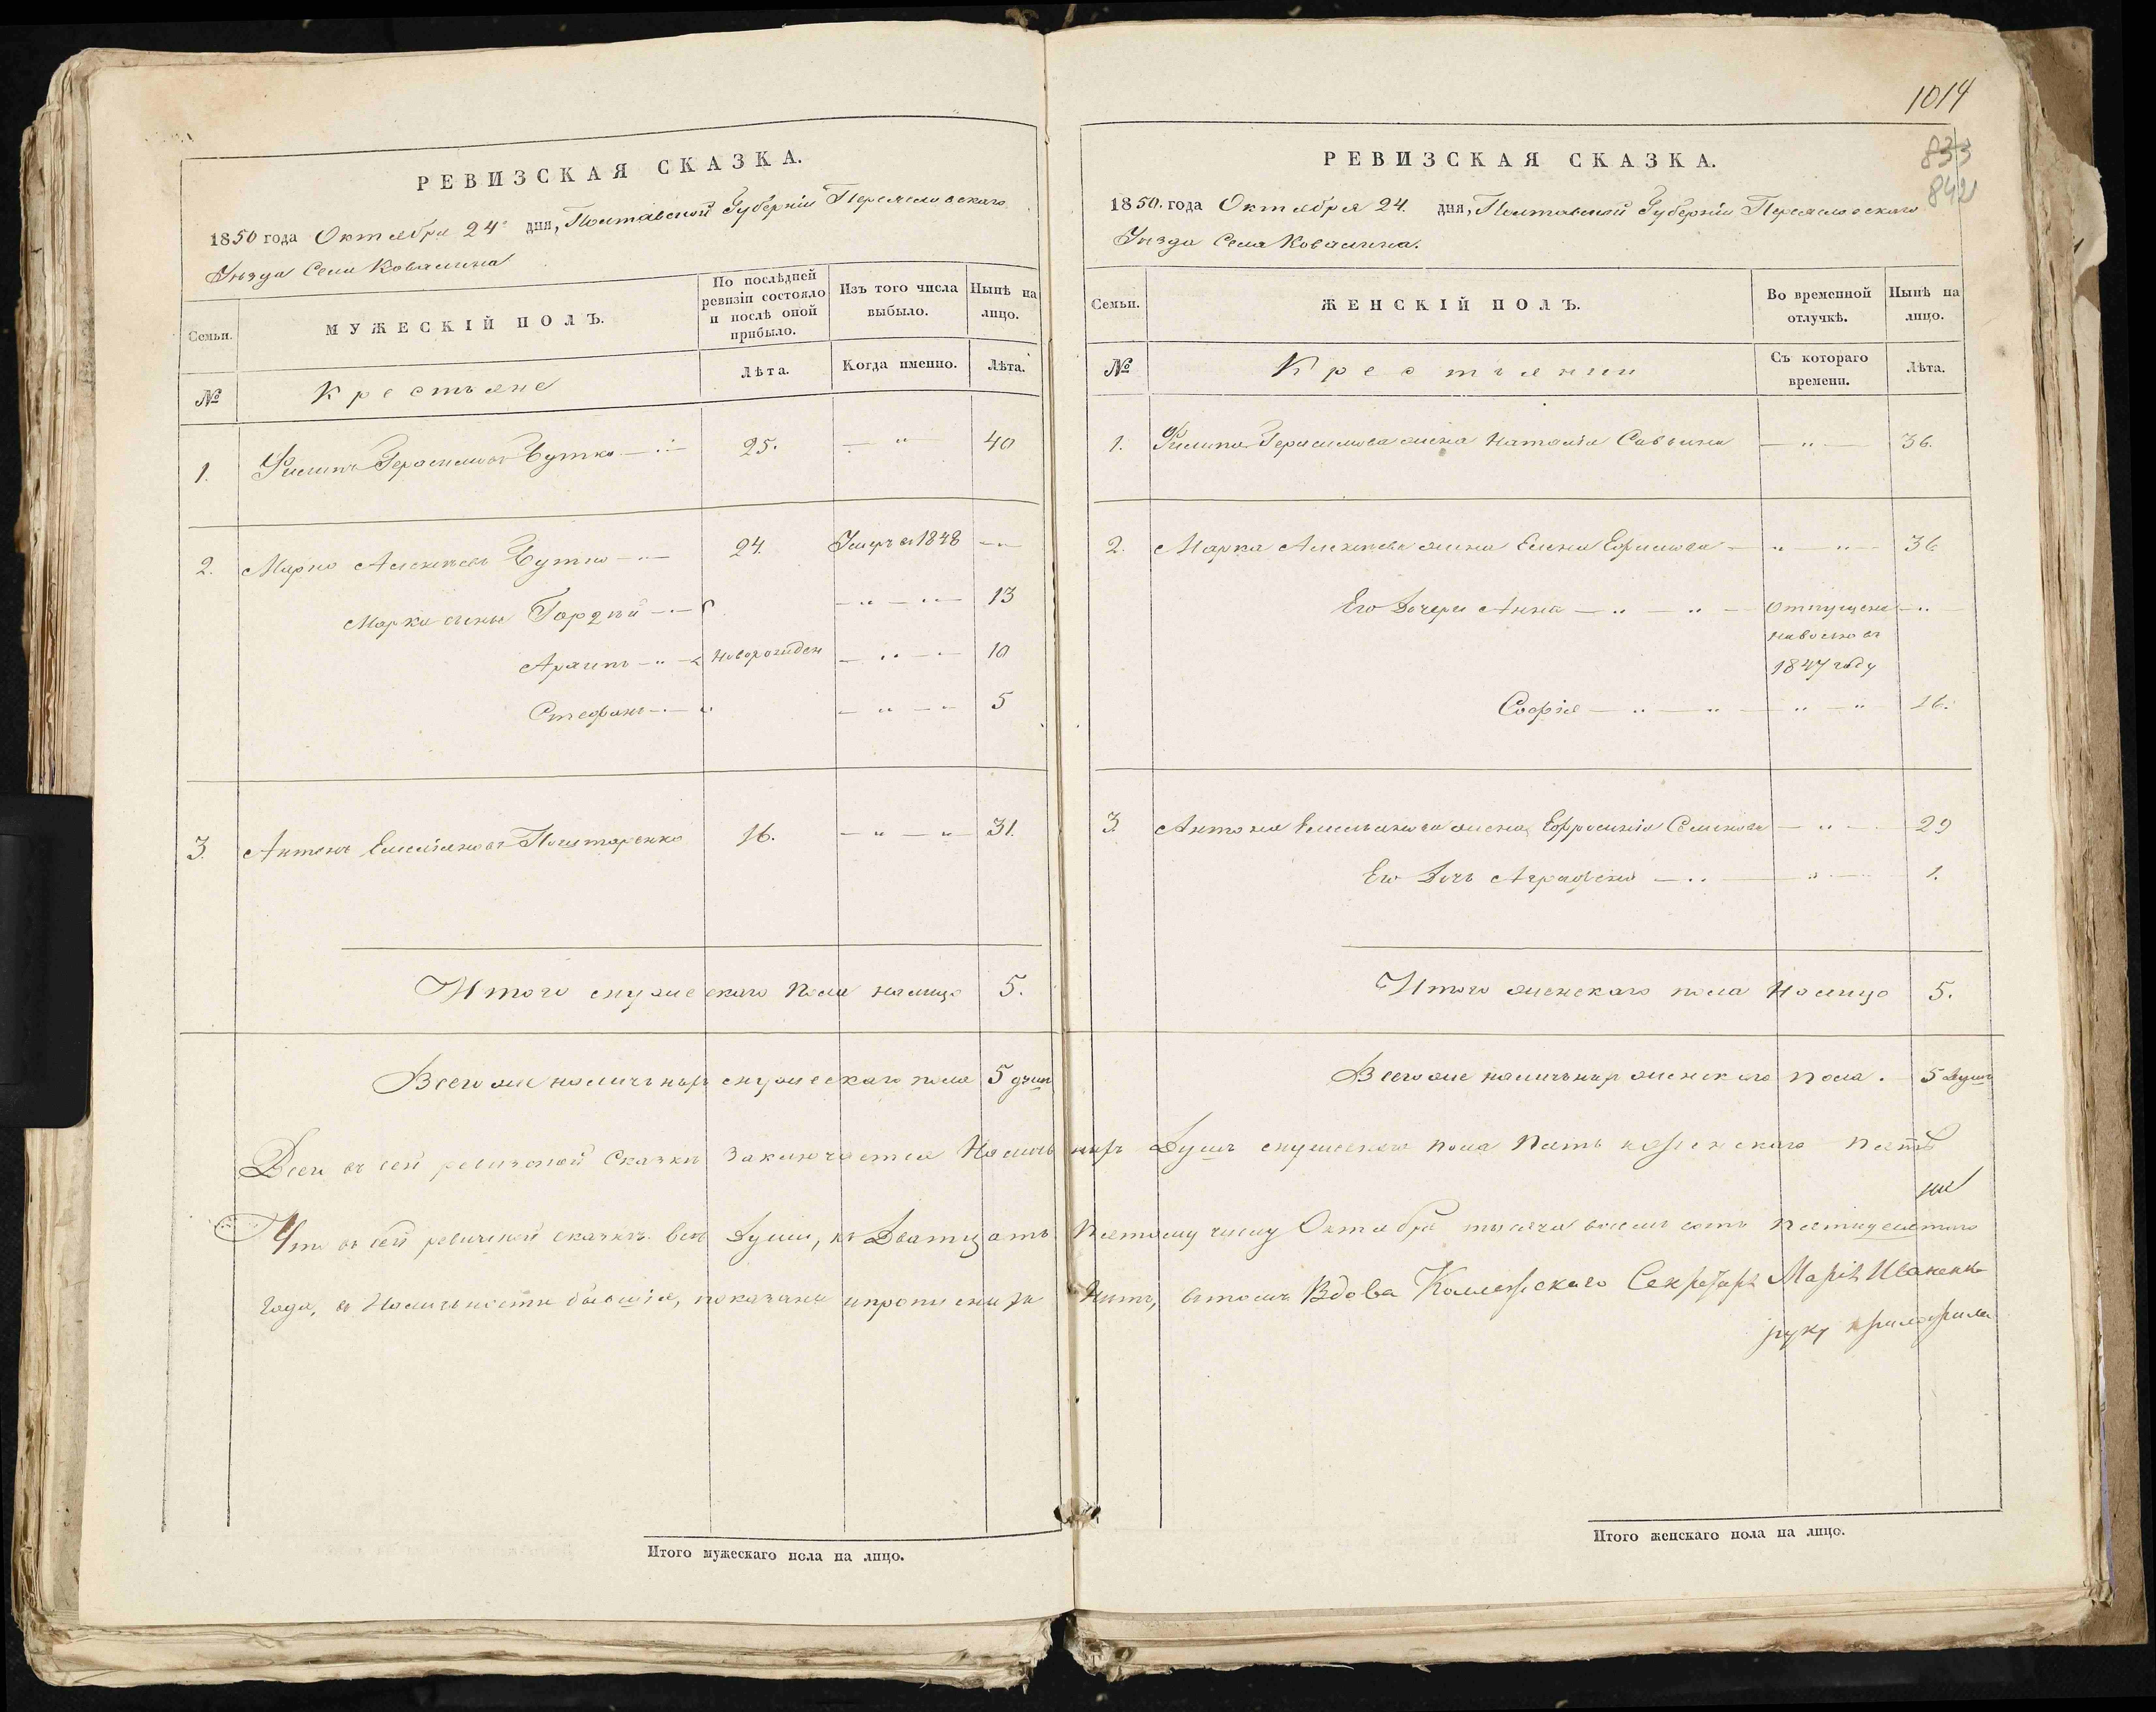 1014
833
842
РЕВИЗСКАЯ СКАЗКА.
1850 года Октября 24 дня, Полтавской Губерніи Переясловскаго
Уѣзда Села Ковалина
Семьи.
МУЖЕСКІЙ ПОЛЪ.
По послѣдней ревизіи состояло и послѣ оной прибыло.
Изъ того числа выбыло.
Нынѣ на лицо.
№
Крестьяне
Лѣта.
Когда именно.
Лѣта.
1. Филипъ Герасимовъ Бутко 25. 40
2. Марко Алексѣевъ Бутко 24. Умеръ въ 1848
Марка сыны Гордѣй 13
Архипъ Новорожден 10
Стефанъ 5
3. Антонъ Емельяновъ 16. 31.
Итого мужескаго пола налицо 5.
Всего же наличныхъ мужескаго пола 5 душъ
РЕВИЗСКАЯ СКАЗКА.
1850. года Октября 24. дня, Полтавской Губерніи Переясловскаго
Уѣзда Села Ковалина.
Семьи.
ЖЕНСКІЙ ПОЛЪ.
Во временной отлучкѣ.
Нынѣ на лицо.
№
Крестьянки
Съ котораго времени.
Лѣта.
1. Филипа Герасимова жена Наталія Саввина 36.
2. Марка Алексѣева жена Елена Ефимова 36
Его Дочери Анна Отпущена
на волю въ
1847 году
Софія 16.
3. Антона Емельянова жена Ефросинія Семенова 29
Его Дочь Аграфена 1.
Итого женскаго пола налицо 5.
Всего же наличныхъ женскаго пола. 5 Душъ
Всего въ сей ревизской Сказкѣ заключается Наличныхъ Душъ мужескаго пола Пять женскаго пять
Что въ сей ревизской сказкѣ всѣ Души, къ Двадцать Пятому числу Октября тысяча восемь сотъ пятидесятаго
года, въ Наличности бывшія, показаны и прописныхъ нѣтъ, въ томъ Вдова Коллежскаго Секретаря Марія Иваненкова
руку приложила
Итого мужескаго пола на лицо.
Итого женскаго пола на лицо.